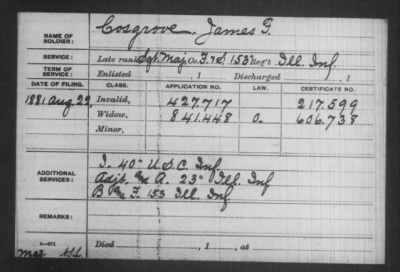 NAME OF SOLDIER: Cosgrove, James F.
SERVICE: Late rank Sgt. Maj. Co. F. & S 153 Reg't Ill. Inf
TERM OF SERVICE: Enlisted , 1 Discharged , 1
DATE OF FILING. CLASS. APPLICATION NO. LAW. CERTIFICATE NO.
1881 Aug 29, Invalid, 427.717 217.599
Widow, 841.448 606.738
Minor,
ADDITIONAL SERVICES: I. 40" U.S.C. Inf
Adjt. A. 23" Ill. Inf
B F. 153 Ill. Inf.
REMARKS:
Died , 1 , at